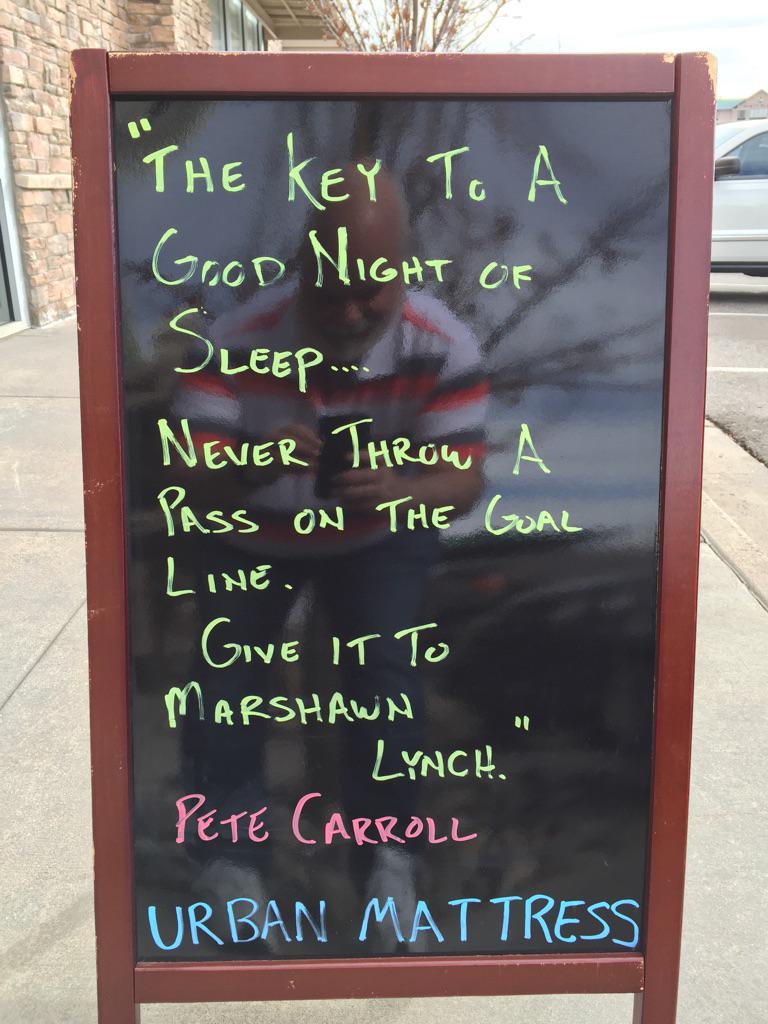 "THE KEY TO A
GOOD NIGHT OF
SLEEP....
NEVER THROW A
PASS ON THE GOAL
LINE.
GIVE IT TO
MARSHAWN
LYNCH."
PETE CARROLL
URBAN MATTRESS